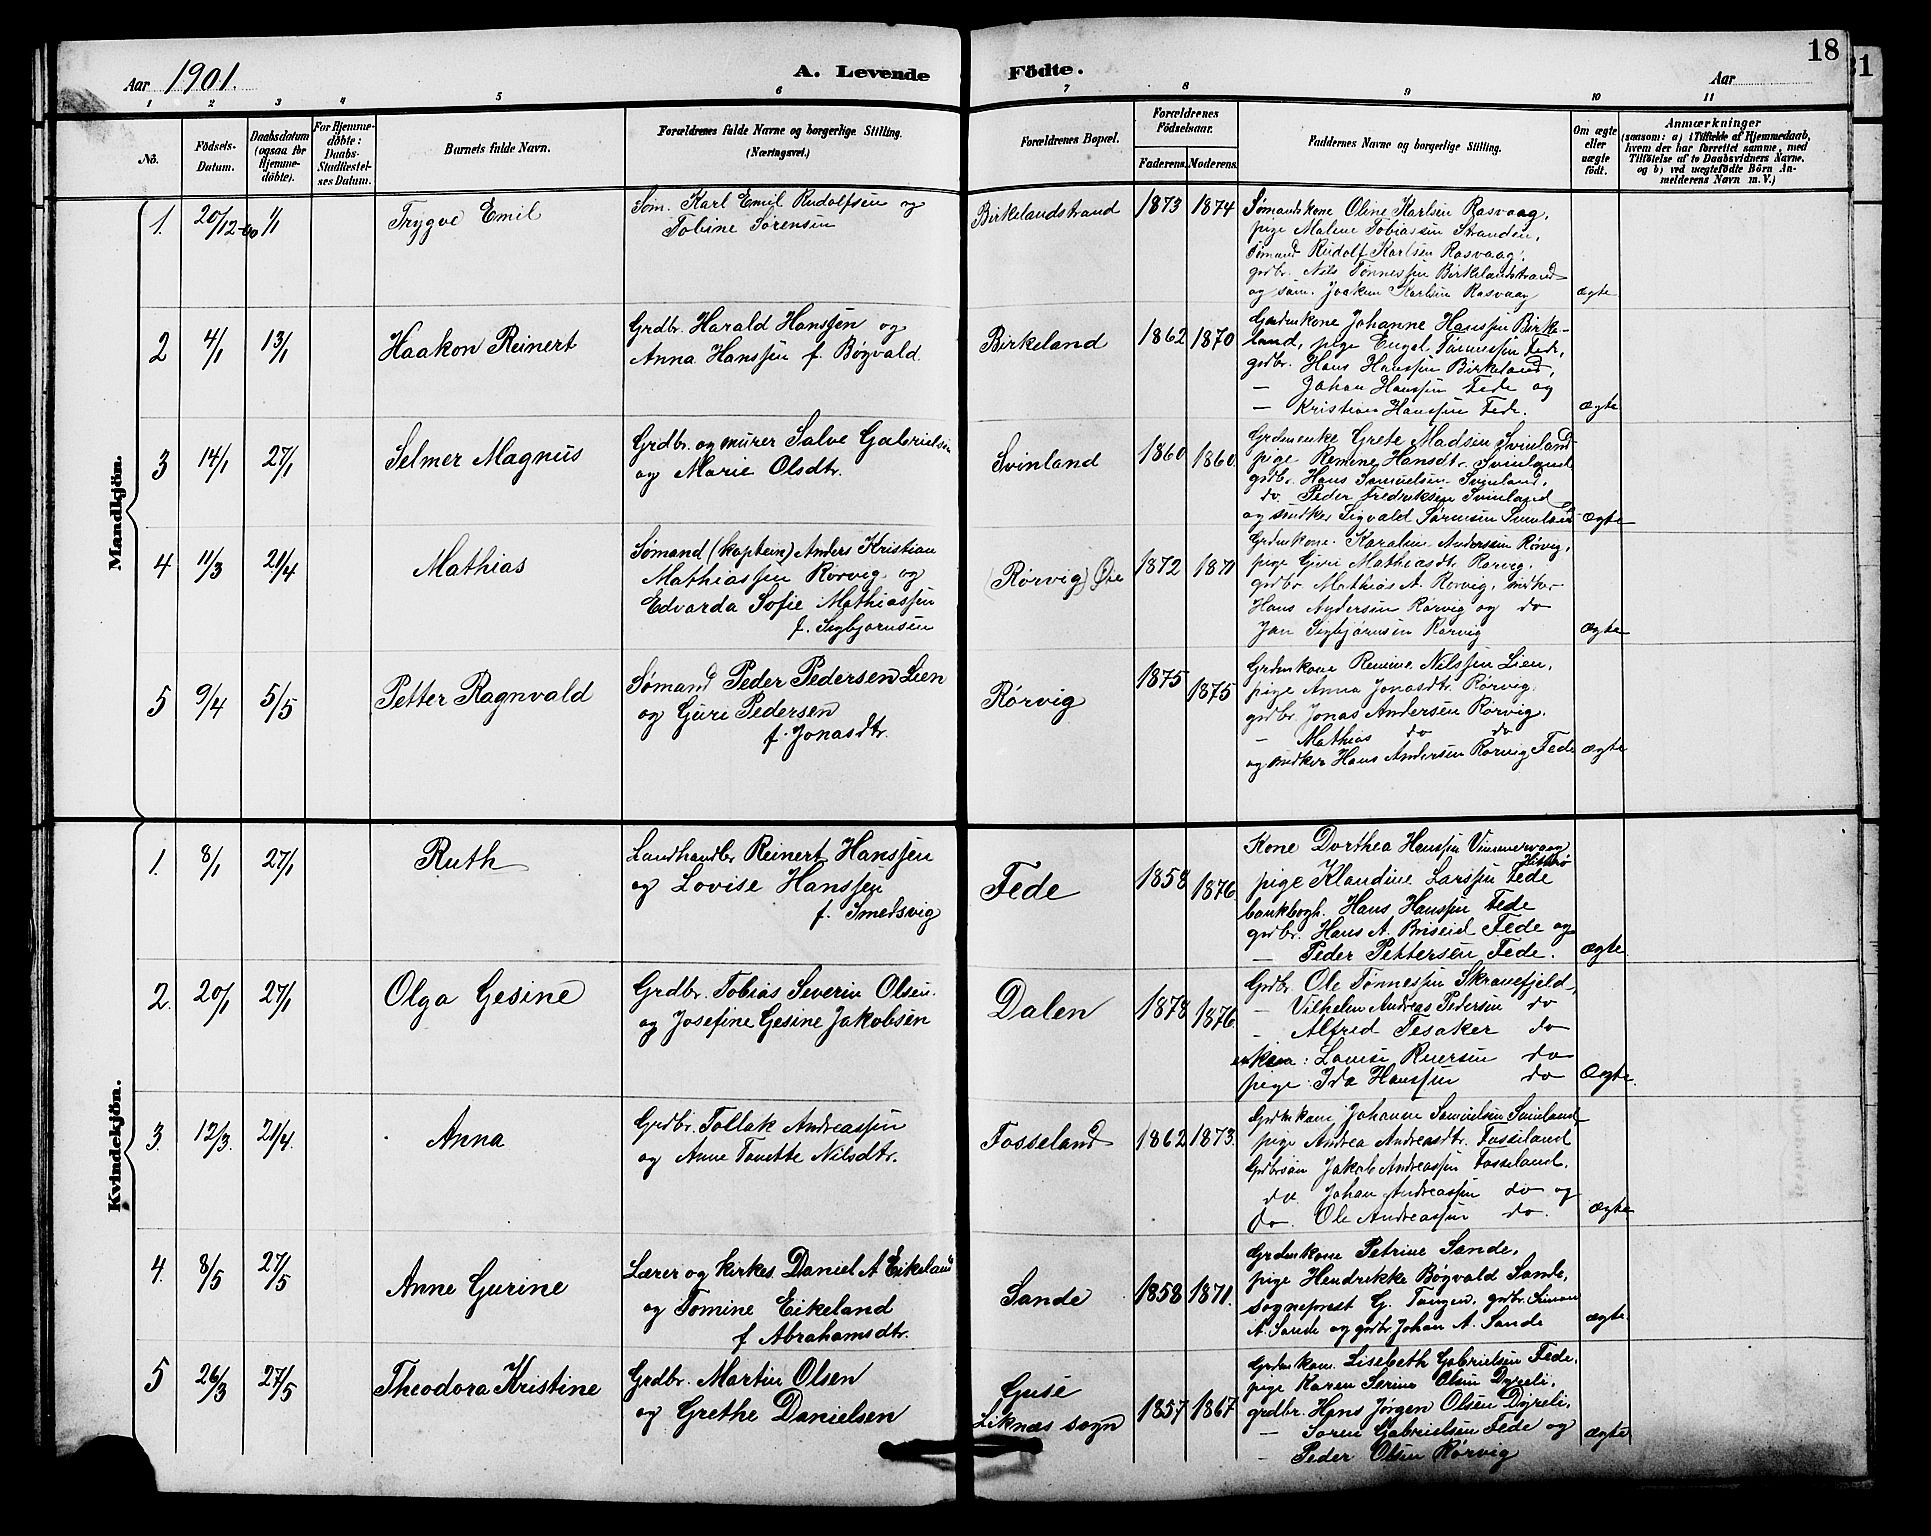 18
31
Aar 1901.
A. Levende Födte.
Aar
1 2 3 4 5 6 7 8 9 10 11
No.
Födsels-
Datum.
Daabsdatum
(ogsaa for
Hjemme-
döbte).
For Hjemme-
döbte:
Daabs-
Stadfæstel-
ses Datum.
Barnets fulde Navn.
Forældrenes fulde Navne og borgerlige Stilling.
(Næringsvei.)
Forældrenes Bopæl.
Forældrenes
Födselsaar.
Faderens. Moderens.
Faddernes Navne og borgerlige Stilling.
Om ægte
eller
uægte
födt.
Anmærkninger
(saasom: a) i Tilfælde af Hjemmedaab,
hvem der har forrettet samme, med
Tilföielse af to Daabsvidners Navne,
og b) ved uægtefödte Börn An-
melderens Navn m. V.)
Mandkjön.
1. 20/12-00 1/1
Trygve Emil
Søm. Karl Emil Rudolfsen og
Tobine Sørensen
Birkelandstrand
1873 1874
Sømandskone Oline Karlsen Rasvaag,
pige Malene Tobiassen Stranden,
sømand Rudolf Karlsen Rasvaag,
grdbr. Nils Tønnessen Birkelandstrand
og søm. Joakim Karlsen Rasvaag
ægte
2 4/1 13/1
Haakon Reinert
Grdbr. Harald Hanssen og
Anna Hanssen f. Bøgvald.
Birkeland
1862 1870
Grdmkone Johanne Hanssen Birke-
land, pige Engel Tønnessen Fede,
grdbr. Hans Hanssen Birkeland,
— Johan Hanssen Fede og
— Kristian Hanssen Fede.
ægte
3 14/1 27/1
Selmer Magnus
Grdbr. og murer Salve Gabrielsen
og Marie Olsdtr.
Svinland
1860 1860.
Grdmenke Grete Madsen Svinland
pige Remine Hansdtr. Svinland
grdbr. Hans Samuelsen Svinland,
do. Peder Fredriksen Svinland
og snedker Sigvald Sørensen
ægte
4 11/3 21/4
Mathias
Sømand (kaptein) Anders Kristian
Mathiassen Rørvig og
Edvarda Sofie Mathiassen
f. Sigbjørnsen
(Rørvig) Øie
1872 1871
Grdmkone Karoline Anderssen Rørvig,
pige Guri Mathiasdtr. Rørvig,
grdbr. Mathias A. Rørvig, snedker
Hans Andersen Rørvig og do
Jan Sigbjørnsen Rørvig
ægte
5 9/4 5/5
Petter Ragnvald
Sømand Peder Pedersen Lien
og Guri Pedersen
f. Jonasdtr.
Rørvig
1875 1875
Grdmkone Remine Nilssen Lien,
pige Anna Jonasdtr. Rørvig,
grdbr. Jonas Andersen Rørvig.
— Mathias do do
og snedker Hans Andersen Rørvig Fede
ægte
Kvindekjön.
1. 8/1 27/1
Ruth
Landhandlr Reinert Hanssen
og Lovise Hanssen
f. Smedsvig
Fede
1858 1876
Kone Dorthea Hanssen
Hitterø
pige Klaudine Larssen Fede
bankbogh. Hans Hanssen Fede
grdbr. Hans A. Briseid Fede og
— Peder Pettersen Fede.
ægte
2. 20/1 27/1
Olga Gesine
Grdbr. Tobias Severin Olsen
og Josefine Gesine Jakobsen
Dalen
1878 1876
Grdbr. Ole Tønnessen Skranefjeld,
— Vilhelm Andreas Pedersen do
— Alfred Tesaker do
Lovise do
pige Ida Hanssen do
Ægte.
3. 12/3. 21/4.
Anna
Grdbr. Tollak Andreassen
og Anne Tonette Nilsdtr.
Fosseland
1862 1873.
Grdmkone Johanne Samuelsen Svinland
pige Andrea Andreasdtr. Fosseland
Grdbrsøn Jakob Andreassen Fosseland,
do. Johan Andreassen do og
do. Ole Andreassen do.
ægte
4. 8/5 27/5
Anne Gurine
Lærer og kirkes. Daniel A Eikeland
og Tomine Eikeland
f Abrahamsdtr.
Sande
1858 1871.
Grdmkone Petrine Sande,
pige Hendrikke Bøgvald Sande,
sogneprest G. Tangen, grdbr. Simon
A. Sande og grdbr. Johan A. Sande
ægte.
5 26/3 27/5
Theodora Kristine
Grdbr. Martin Olsen
og Grethe Danielsen
Guse
Liknæs sogn
1857 1867
Grdmkone Lisebeth Gabrielsen Fede,
pige Karen Serine Olsen Dyreli,
grdbr. Hans Jørgen Olsen Dyreli,
— Søren Gabrielsen Fede og
— Peder Olsen Rørvig
ægte